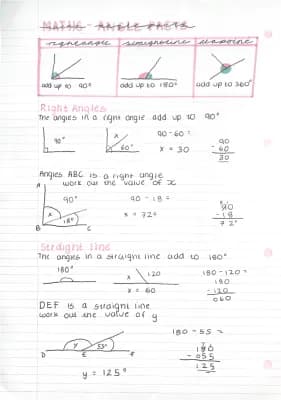 MATHS - ANGLE FACTS
right angle straight line
add up to 90° add up to 180° add up to 360°
Right Angles
The angles in a right angle add up to 90°
90°
x 60°
90 - 60 =
x = 30
90
- 60
30
Angles ABC is a right angle
work out the value of x
A
90°
x 18°
B C
90 - 18 =
x = 72°
90
- 18
72°
Straight line
The angles in a straight line add to 180°
180°
x 120
x = 60
180 - 120 =
180
- 120
060
DEF is a straight line
work out the value of y
y 55°
D E F
y = 125°
180 - 55 =
180
- 055
125